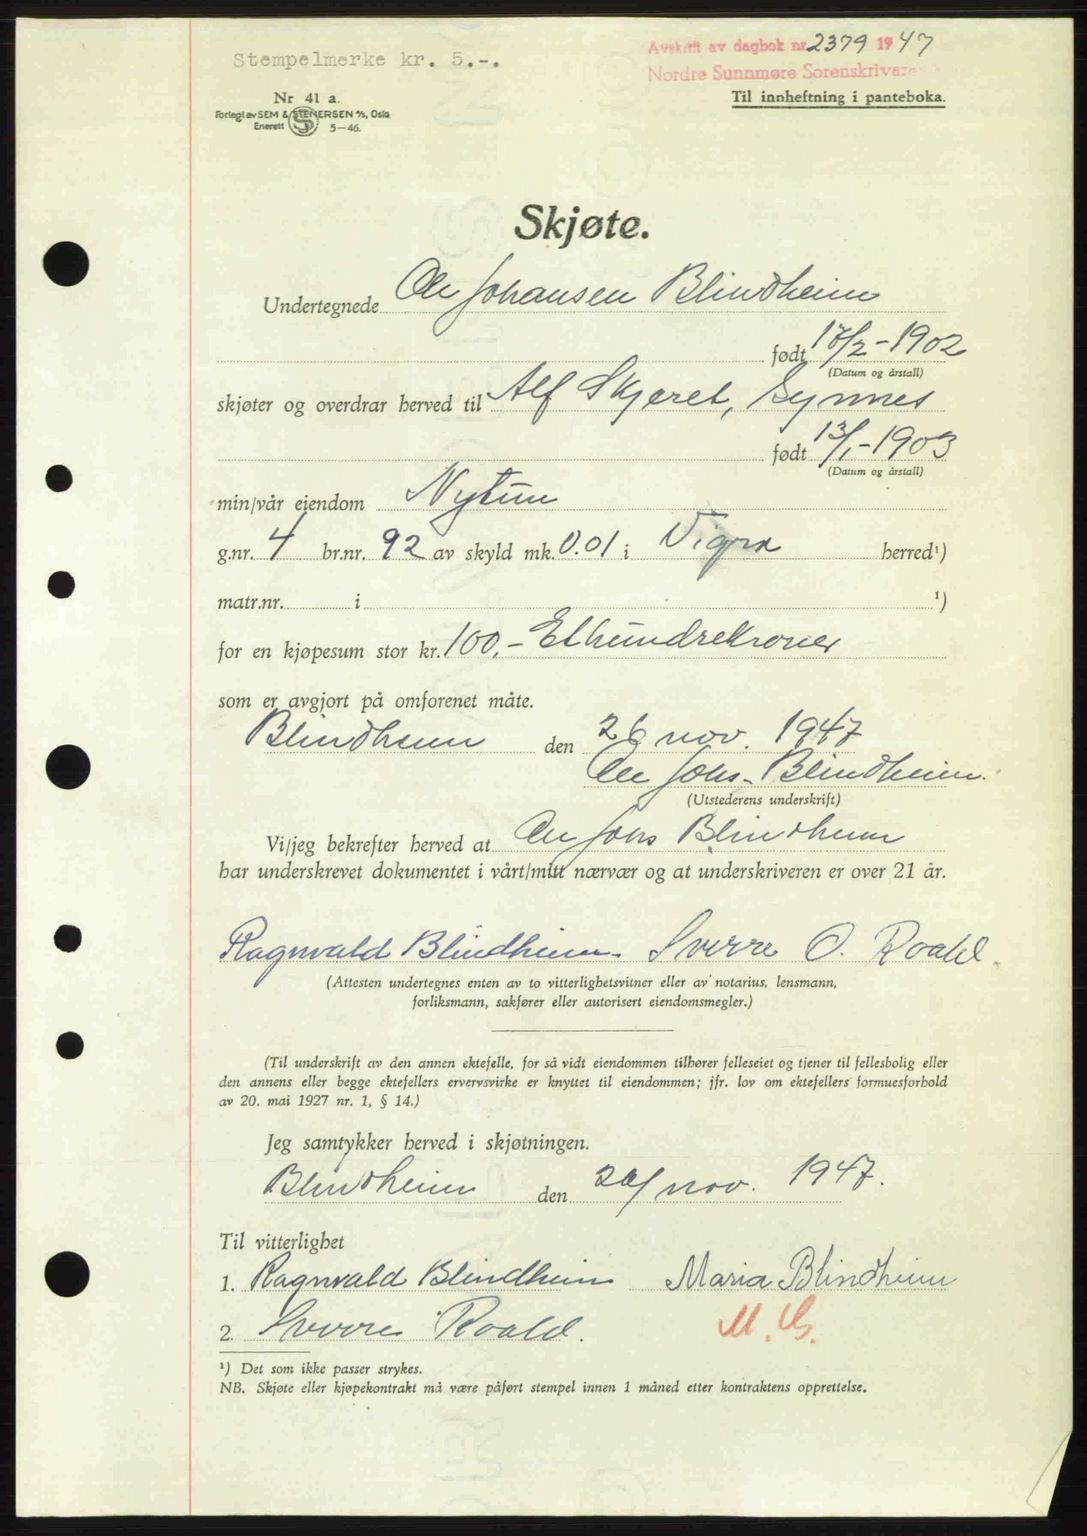 Stempelmerke kr. 5.-.
Avskrift av dagbok nr. 2379 1947
Nordre Sunnmøre Sorenskrivar
Til innheftning i panteboka.
Nr 41 a.
Forlegt av SEM & STENERSEN A/S, Oslo
Enerett 5-46.
Skjøte.
Undertegnede Ole Johansen Blindheim
født 17/2-1902
(Datum og årstall)
skjøter og overdrar herved til Alf Skjeret, Synnes
født 13/1-1903
(Datum og årstall)
min/vår eiendom Nytun
g.nr. 4 br.nr. 92 av skyld mk. 0.01 i Vigra herred¹)
matr.nr. i ¹)
for en kjøpesum stor kr. 100,- Ethundrekroner
som er avgjort på omforenet måte.
Blindheim den 26 nov. 1947
Ole Johs. Blindheim.
(Utstederens underskrift)
Vi/jeg bekrefter herved at Ole Johs Blindheim
har underskrevet dokumentet i vårt/mitt nærvær og at underskriveren er over 21 år.
Ragnvald Blindheim. Sverre O. Roald.
(Attesten undertegnes enten av to vitterlighetsvitner eller av notarius, lensmann,
forliksmann, sakfører eller autorisert eiendomsmegler.)
(Til underskrift av den annen ektefelle, for så vidt eiendommen tilhører felleseiet og tjener til fellesbolig eller
den annens eller begge ektefellers ervervsvirke er knyttet til eiendommen; jfr. lov om ektefellers formuesforhold
av 20. mai 1927 nr. 1, § 14.)
Jeg samtykker herved i skjøtningen.
Blindheim den 26/ nov. 1947.
Til vitterlighet
1. Ragnvald Blindheim Maria Blindheim
2. Sverre Roald.
¹) Det som ikke passer strykes.
NB. Skjøte eller kjøpekontrakt må være påført stempel innen 1 måned etter kontraktens opprettelse.